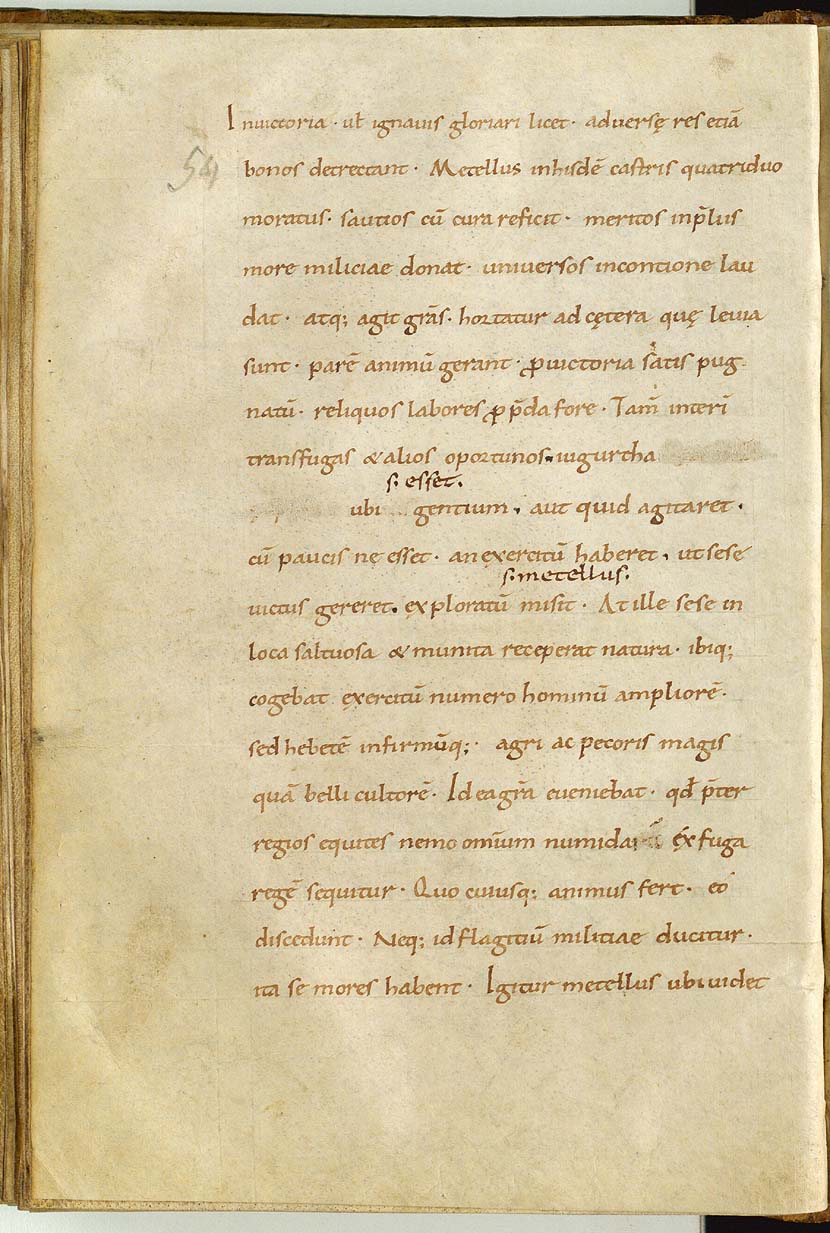 Inuictoria · ut ignauis gloriari licet · aduersę res etiā
54
bonos detrectant · Metellus inhisdē castris quatriduo
moratus · sautios cū cura reficit · meritos inp̄lus
more miliciae donat · uniuersos incontione lau
dat · atq; agit grās · hortatur ad cętera quę leuia
sunt · parē animū gerant · ꝓ uictoria satis pug
natū · reliquos labores ꝓ p̄da fore · Tam̄ interī
transfugas & alios oportunos · iugurtha
s. esset.
ubi gentium · aut quid agitaret ·
cū paucis ne esset · an exercitū haberet · ut sese
s. metellus.
uictus gereret · exploratū misit · At ille sese in
loca saltuosa & munita receperat natura · ibiq;
cogebat exercitū numero hominū ampliorē ·
sed hebetē infirmūq; · agri ac pecoris magis
quā belli cultorē · Id ea grā eueniebat · qd̄ p̄ter
regios equites nemo omīum numida ex fuga
regē sequitur · Quo cuiusq; animus fert · eo
discedunt · Neq; id flagitiū militiae ducitur ·
ita se mores habent · Igitur metellus ubi uidet